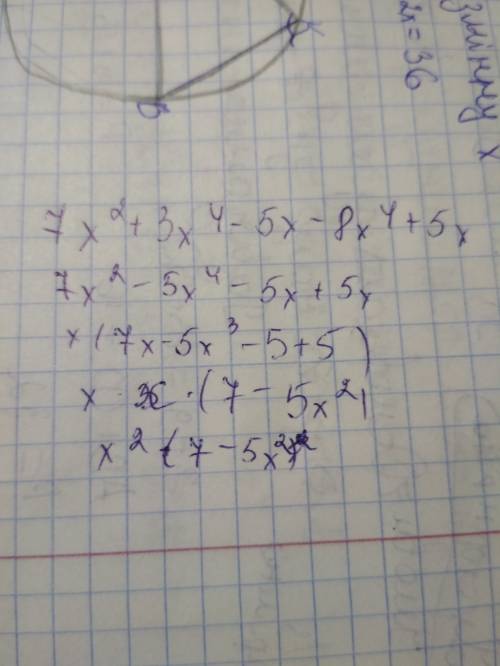 змінну x
= 36
B
7x² + 3x⁴ - 5x - 8x⁴ + 5x
7x² - 5x⁴ - 5x + 5x
x (7x - 5x³ - 5 + 5)
x · x · (7 - 5x²)
x² (7 - 5x²)